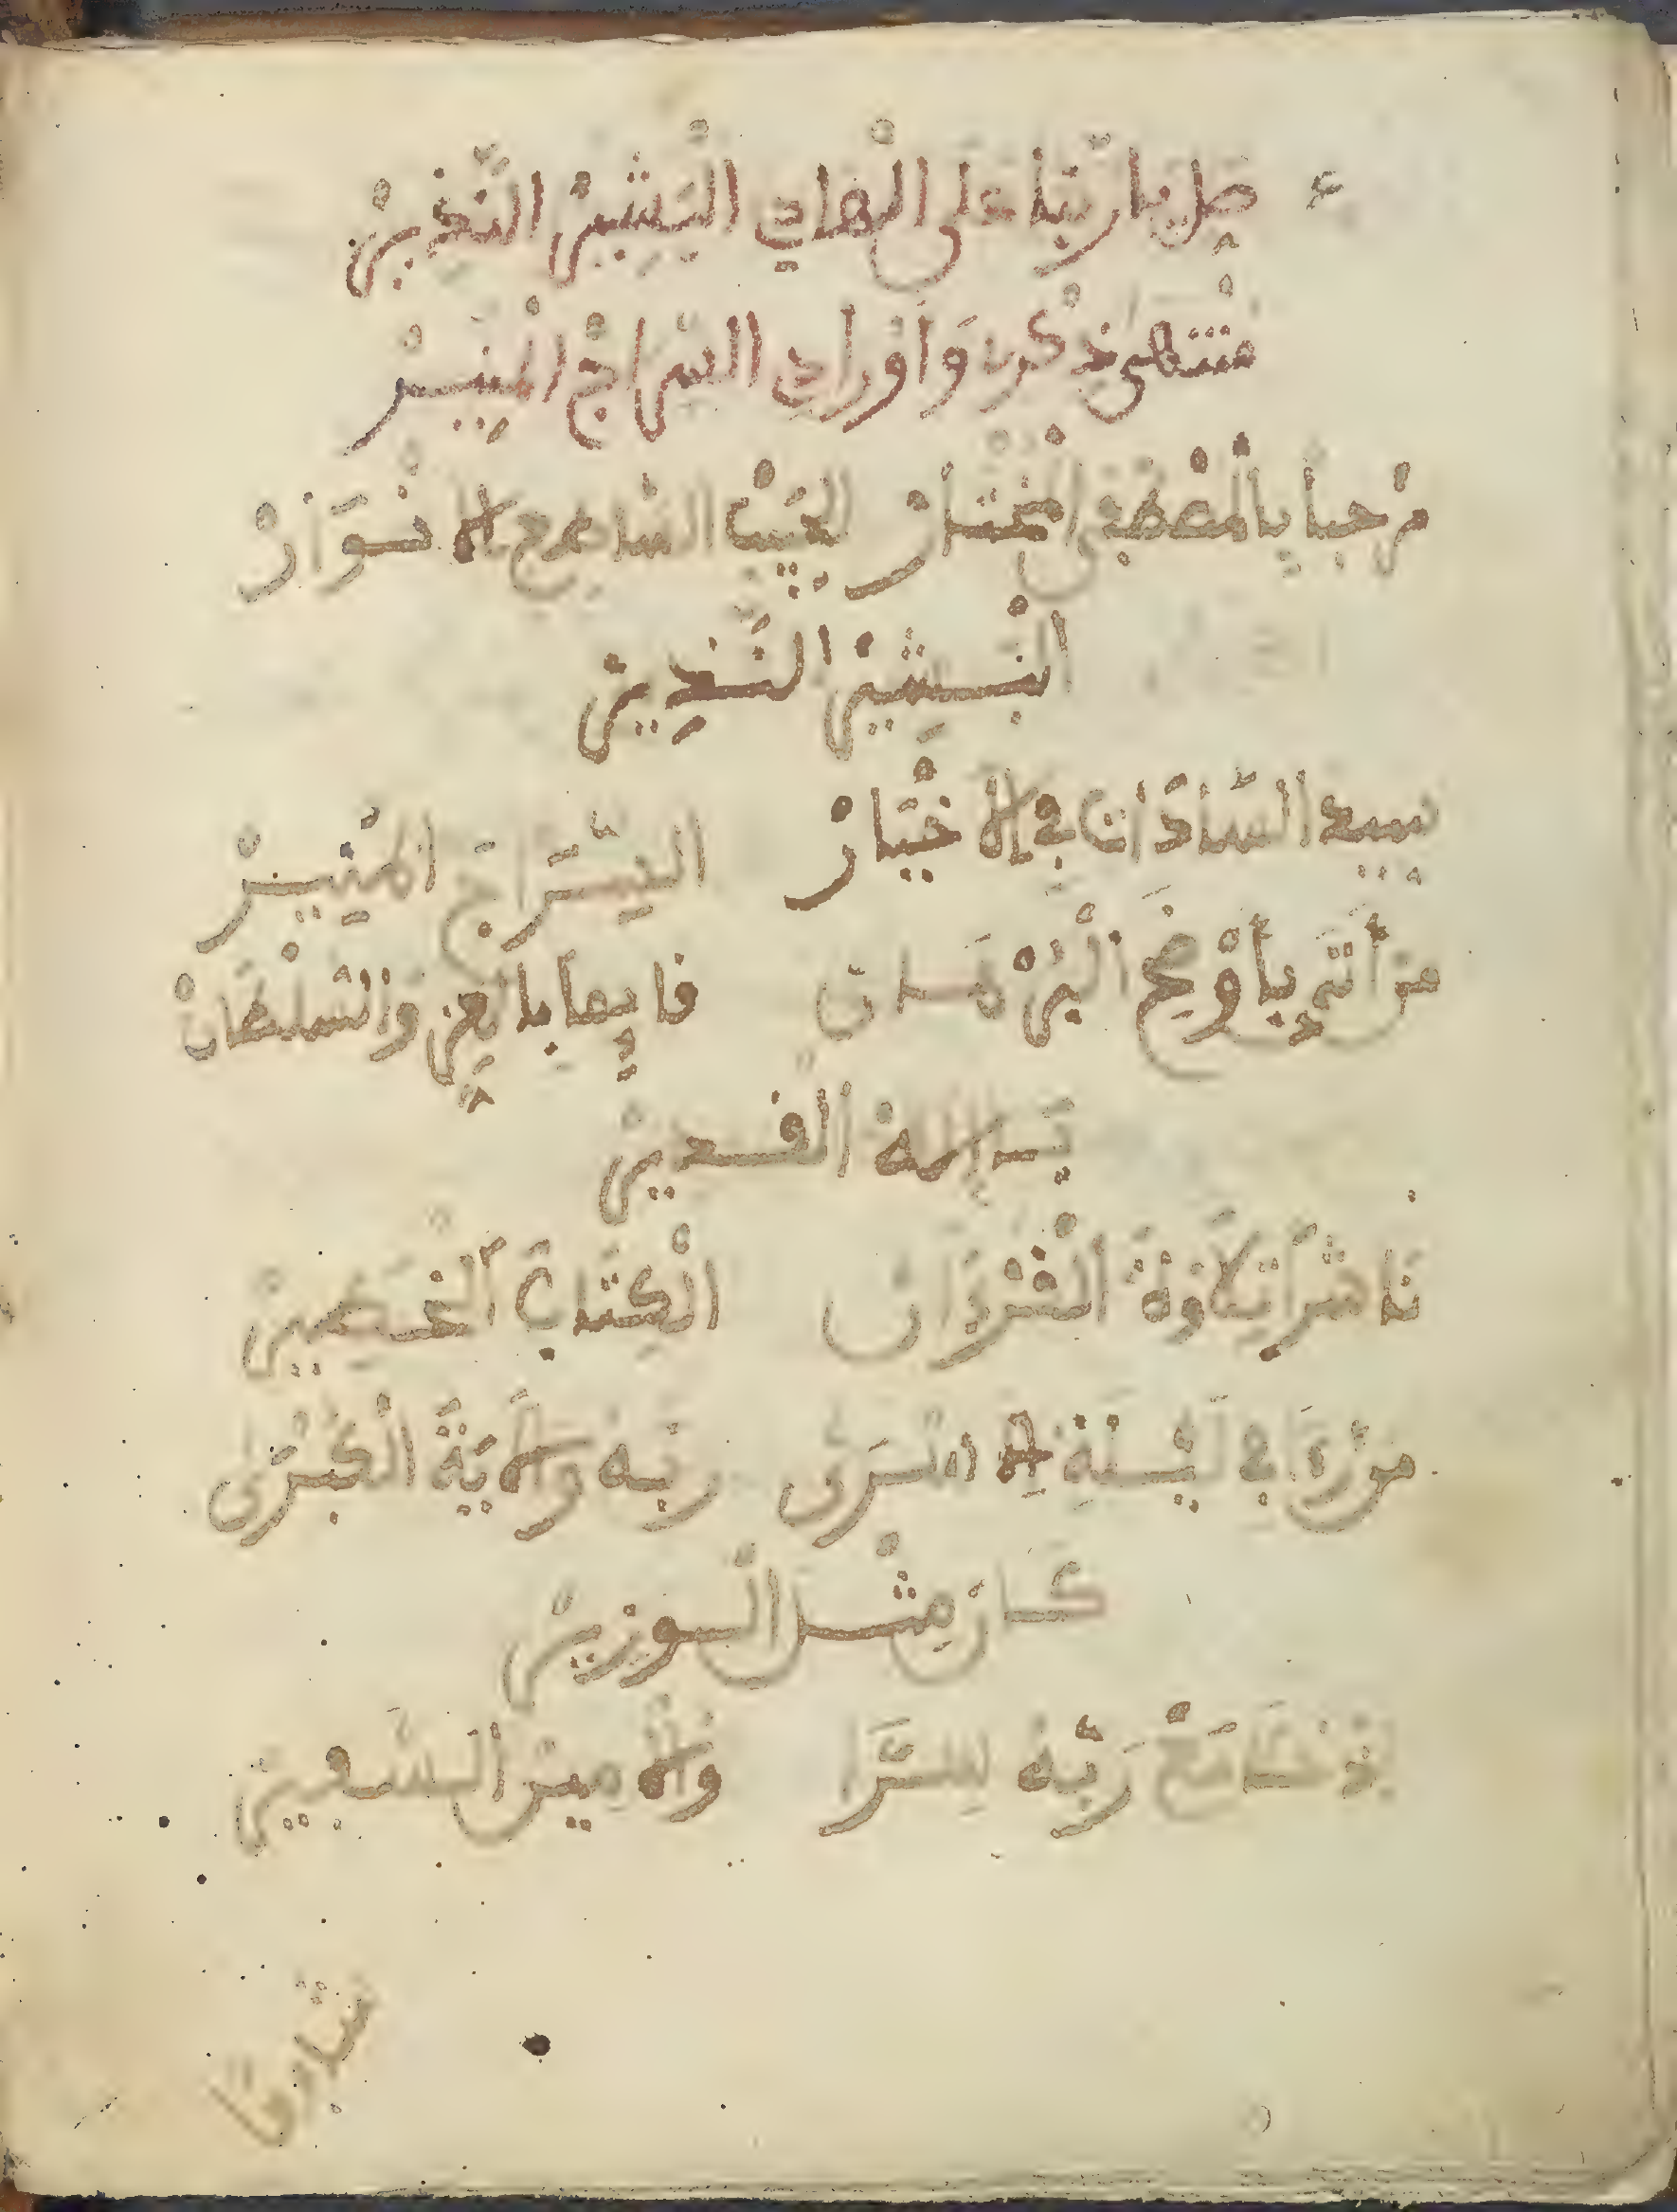 صل يا ربنا على الهادي البشير النذير
منتهى ذكر وأوراد السراج المنير
مرحبا بالمصطفى المختار الحبيب الساطع الانوار
البشير النذير
سيد السادات في الاختيار السراج المنير
من أتى بأوضح البرهان قايما بالعز والسلطان
القدير
ناشرا تلاوة القرءان الكتاب الحكيم
من رءا في ليلة الاسرى ربه والاية الكبرى
كان مثل الوزير
مع ربه سرا والامين السفير
شارقا